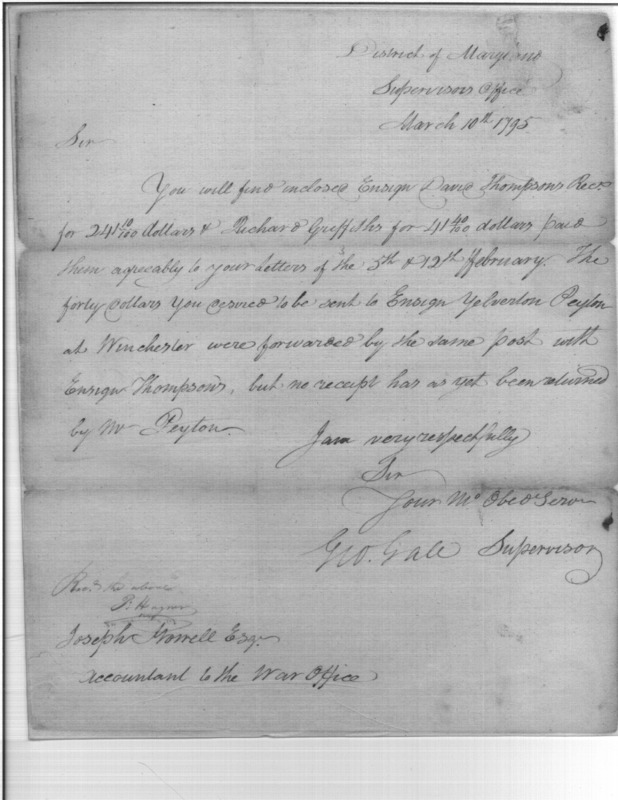 District of Maryland
Supervisors Office
March 10th 1795
Sir
You will find inclosed Ensign David Thompsons Rect
for 241 10/100 dollars & Richard Griffiths for 41 40/100 dollars paid
them agreeably to your Letters of the 5th & 12th February. The
forty dollars you desired to be sent to Ensign Yelverton Peyton
at Winchester were forwarded by the same post with
Ensign Thompson's, but no receipt has as yet been returned
by Mr Peyton.
I am very respectfully
Sir
Your Mo Obed Serv
Geo. Gale Supervisor
Recd the above
P. Hagner
Joseph Howell Esqr
Accountant to the War Office